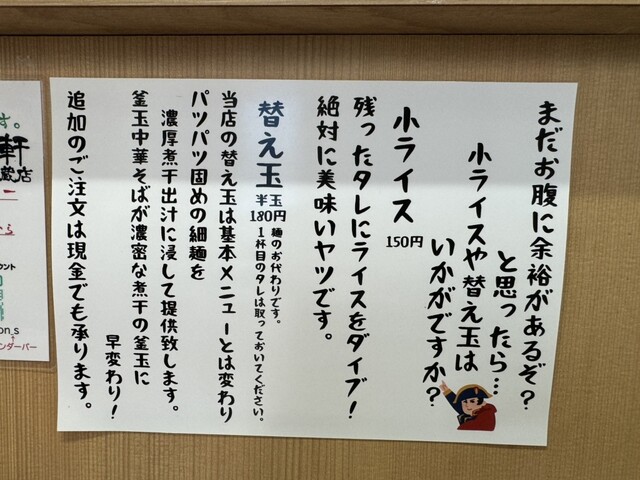 まだお腹に余裕があるぞ？
と思ったら…
小ライスや替え玉は
いかがですか？
小ライス 150円
残ったタレにライスをダイブ！
絶対に美味いヤツです。
替え玉 半玉 180円
麺のお代わりです。
1杯目のタレは取っておいてください。
当店の替え玉は基本メニューとは変わり
パツパツ固めの細麺を
濃厚煮干出汁に浸して提供致します。
釜玉中華そばが濃密な煮干の釜玉に
早変わり！
追加のご注文は現金でも承ります。
す。
軒
蔵店
から
ウント
on_s
ンダーバー